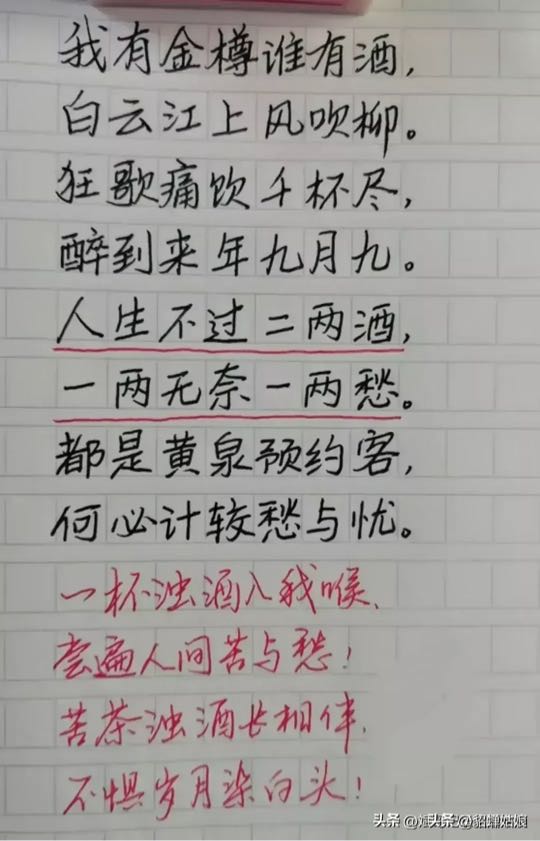 我有金樽谁有酒,
白云江上风吹柳。
狂歌痛饮千杯尽,
醉到来年九月九。
人生不过二两酒,
一两无奈一两愁。
都是黄泉预约客,
何必计较愁与忧。
一杯浊酒入我喉,
尝遍人间苦与愁!
苦茶浊酒长相伴,
不惧岁月染白头!
头条 @貂蝉姑娘